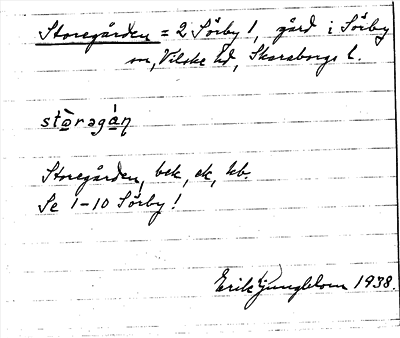 Storegården = 2 Sörby 1, gård i Sörby
sn, Vilske hd, Skaraborgs l.
stòrəgàn
Storegården, bek, ek, kb.
Se 1-10 Sörby!
Erik Ljungblom 1938.